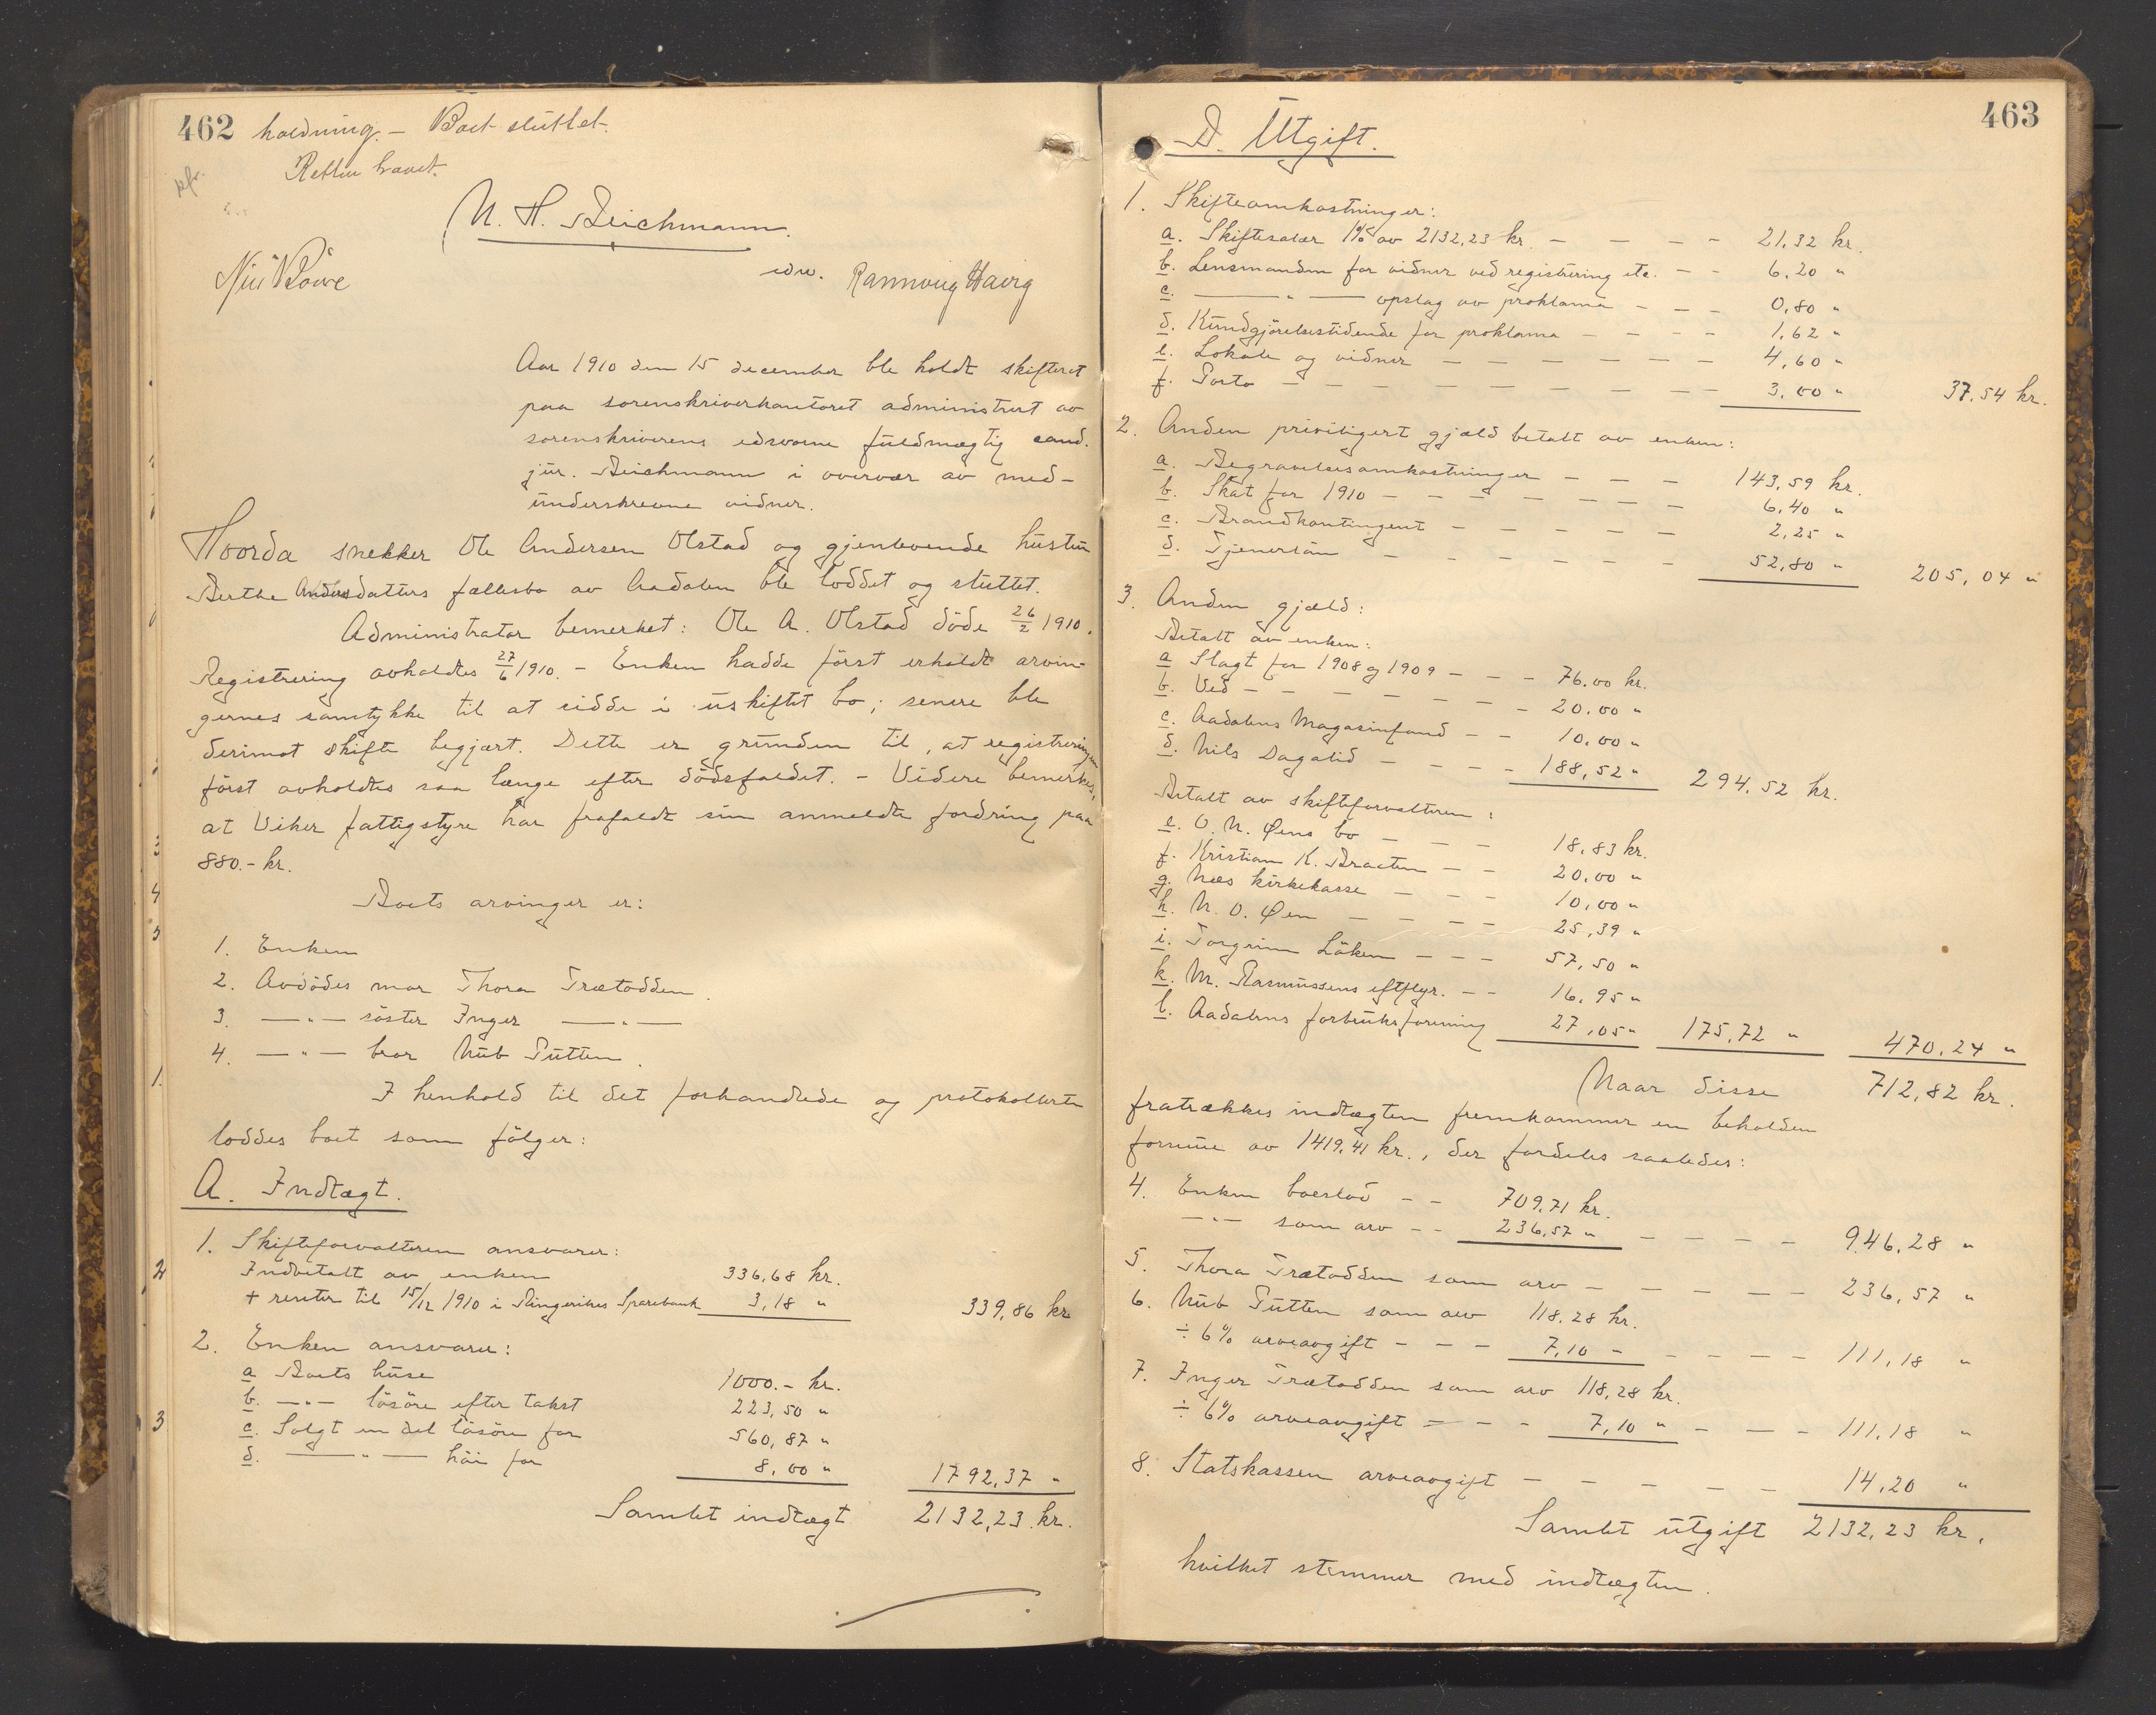 462 holdning. - Boet sluttet.
Retten hævet.
N. H. Deichmann.
edsv. Rannveig Havig
Aar 1910 den 15 december ble holdt skifteret
paa sorenskriverkontoret administrert av
sorenskriverens edsvorne fuldmægtig cand.
jur. Deichmann i overvær av med-
underskrevne vidner.
Hvorda snekker Ole Andersen Olstad og gjenlevende hustru
Berthe Andersdatters fællesbo av Aadalen ble loddet og sluttet.
Administrator bemerket: Ole A. Olstad döde 26/2 1910.
Registrering avholdtes 27/6 1910. - Enken hadde först erholdt arvin-
gernes samtykke til at sidde i uskiftet bo; senere ble
derimot skifte begjært. Dette er grunden til, at registreringen
först avholdtes saa længe efter dödsfaldet. - Videre bemerkes,
at Viker fattigstyre har frafaldt sin anmeldte fordring paa
880.- kr.
Boets arvinger er:
1. Enken
2. Avdödes mor Thora Trætodden.
3. —"— söster Inger —"—
4. —"— bror Nub Putten.
I henhold til det forhandlede og protokollerte
loddes boet som fölger:
A. Indtægt.
1. Skifteforvalteren ansvarer:
Indbetalt av enken 336,68 kr.
+ renter til 15/12 1910 i Ringerikes Sparebank 3,18 " 339,86 kr
2. Enken ansvarer:
a Boets huse 1000.- kr.
b. —"— lösöre efter takst 223,50 "
c. Solgt en del lösöre for 560,87 "
d. —"— höi for 8,00 " 1792,37 "
Samlet indtægt 2132,23. kr.
463
D. Utgift.
1. Skifteomkostninger:
a. Skiftesalær 1% av 2132,23 kr. - - - - 21,32 kr.
b. Lensmanden for vidner ved registrering etc. - - 6,20 "
c. —"— opslag av proklama - - - 0,80 "
d. Kundgjörelsestidende for proklama - - - - 1,62 "
e. Lokale og vidner - - - - - - 4,60 "
f. Porto - - - - - - - - - 3,00 " 37,54 kr.
2. Anden priviligert gjæld betalt av enken:
a. Begravelsesomkostninger - - - 143,59 kr.
b. Skat for 1910 - - - - - - - 6,40 "
c. Brandkontingent - - - - - 2,25 "
d. Tjenerlön - - - - - - 52,80 " 205,04 "
3. Anden gjæld:
Betalt av enken:
a Slagt for 1908 og 1909 - - - 76.00 kr.
b. Ved - - - - - - - 20.00 "
c. Aadalens Magasinfond - - 10,00 "
d. Nils Dagalid - - - - 188,52 " 294,52 kr.
Betalt av skifteforvalteren:
e. O. N. Øens bo - - - 18,83 kr.
f. Kristian K. Braaten - - 20,00 "
g. Næs kirkekasse - - - 10,00 "
h. N. O. Øen - - - - 25,39 "
i. Torgrim Löken - - - 57,50 "
k. M. Rasmussens eftflgr. - - 16,95 "
l. Aadalens forbruksforening 27,05 " 175,72 " 470,24 "
Naar disse 712,82 kr.
fratrækkes indtægten fremkommer en beholden
formue av 1419,41 kr., der fordeles saaledes:
4. Enken boeslod - - 709,71 kr.
—"— som arv - - 236,57 " - - - - 946,28 "
5. Thora Trætodden som arv - - - - - 236,57 "
6. Nub Putten som arv 118.28 kr.
÷ 6% arveavgift - - - 7,10 " - - - - 111,18 "
7. Inger Trætodden som arv 118,28 kr.
÷ 6% arveavgift - - - 7,10 " - - - 111,18 "
8. Statskassen arveavgift - - - - - 14,20 "
Samlet utgift 2132,23 kr.
hvilket stemmer med indtægten.